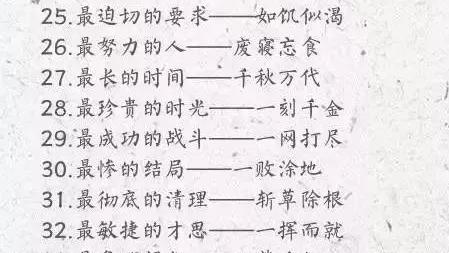 25.最迫切的要求——如饥似渴
26.最努力的人——废寝忘食
27.最长的时间——千秋万代
28.最珍贵的时光——一刻千金
29.最成功的战斗——一网打尽
30.最惨的结局——一败涂地
31.最彻底的清理——斩草除根
32.最敏捷的才思——一挥而就